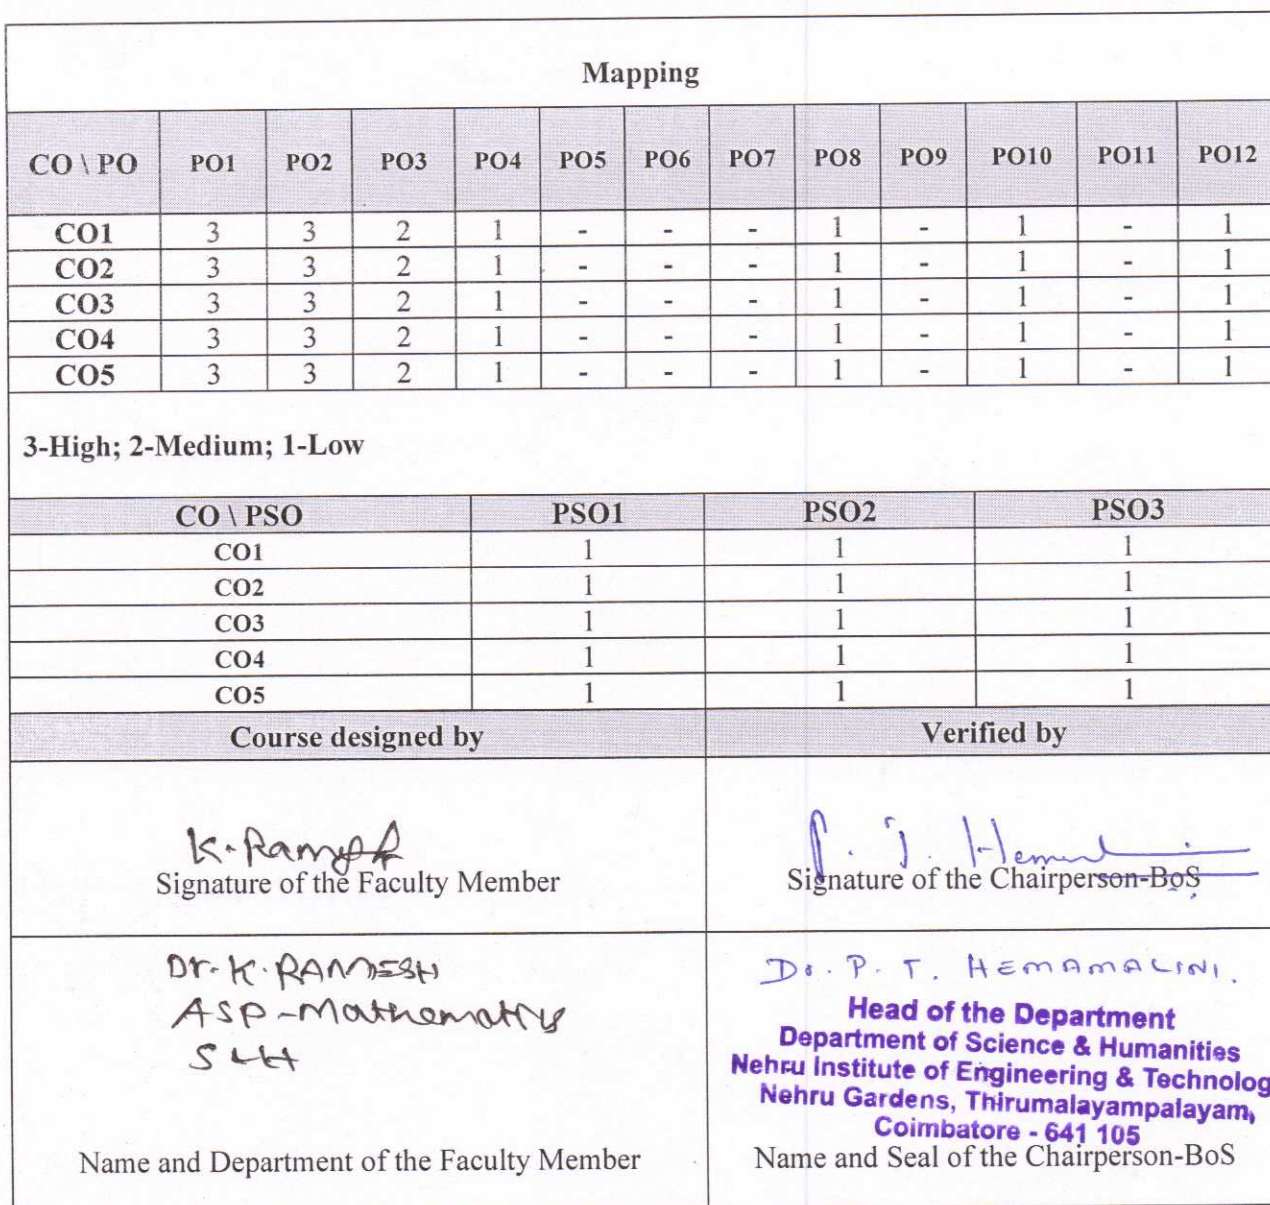 Mapping
CO \ PO PO1 PO2 PO3 PO4 PO5 PO6 PO7 PO8 PO9 PO10 PO11 PO12
CO1 3 3 2 1 - - - 1 - 1 - 1
CO2 3 3 2 1 - - - 1 - 1 - 1
CO3 3 3 2 1 - - - 1 - 1 - 1
CO4 3 3 2 1 - - - 1 - 1 - 1
CO5 3 3 2 1 - - - 1 - 1 - 1
3-High; 2-Medium; 1-Low
CO \ PSO PSO1 PSO2 PSO3
CO1 1 1 1
CO2 1 1 1
CO3 1 1 1
CO4 1 1 1
CO5 1 1 1
Course designed by Verified by
K. Ramesh
Signature of the Faculty Member
P. T. Hemamalini
Signature of the Chairperson-BoS
Dr. K. RAMESH
ASP-Mathematics
S&H
Name and Department of the Faculty Member
Dr. P. T. HEMAMALINI.
Head of the Department
Department of Science & Humanities
Nehru Institute of Engineering & Technolog
Nehru Gardens, Thirumalayampalayam,
Coimbatore - 641 105
Name and Seal of the Chairperson-BoS